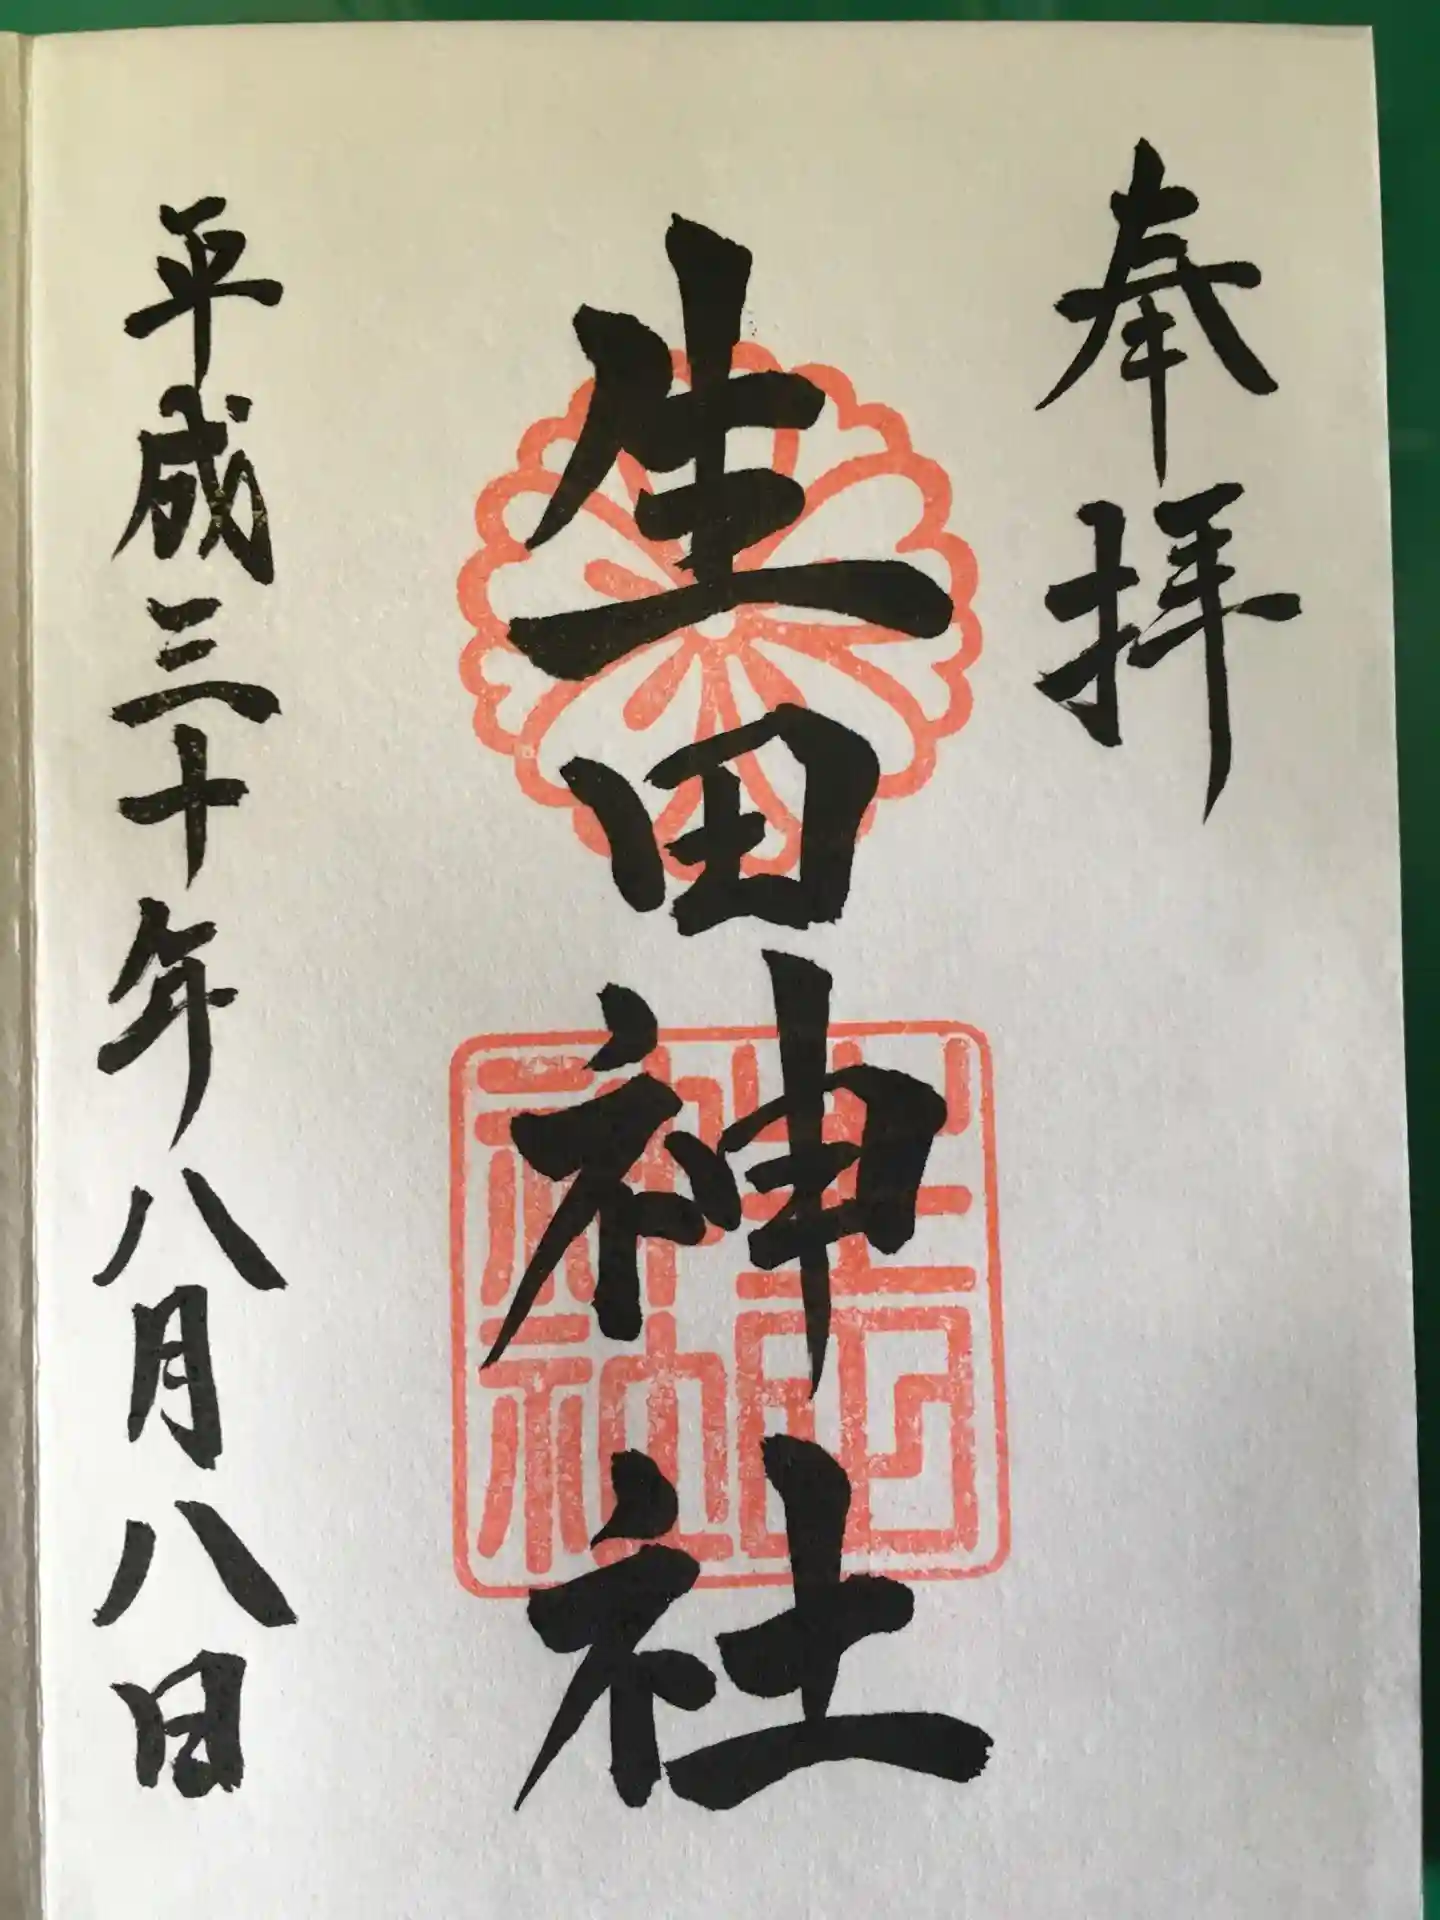 奉拝
生田神社
生田神社
平成三十年八月八日